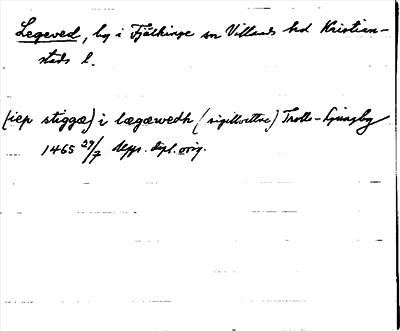 Legeved, by i Fjälkinge sn Villands hd Kristian-
stads l.
(iep stiggæ) i lægæwedh (sigillvittne) Trolle-Ljungby
1465 29/7 Uppl. dipl. orig.